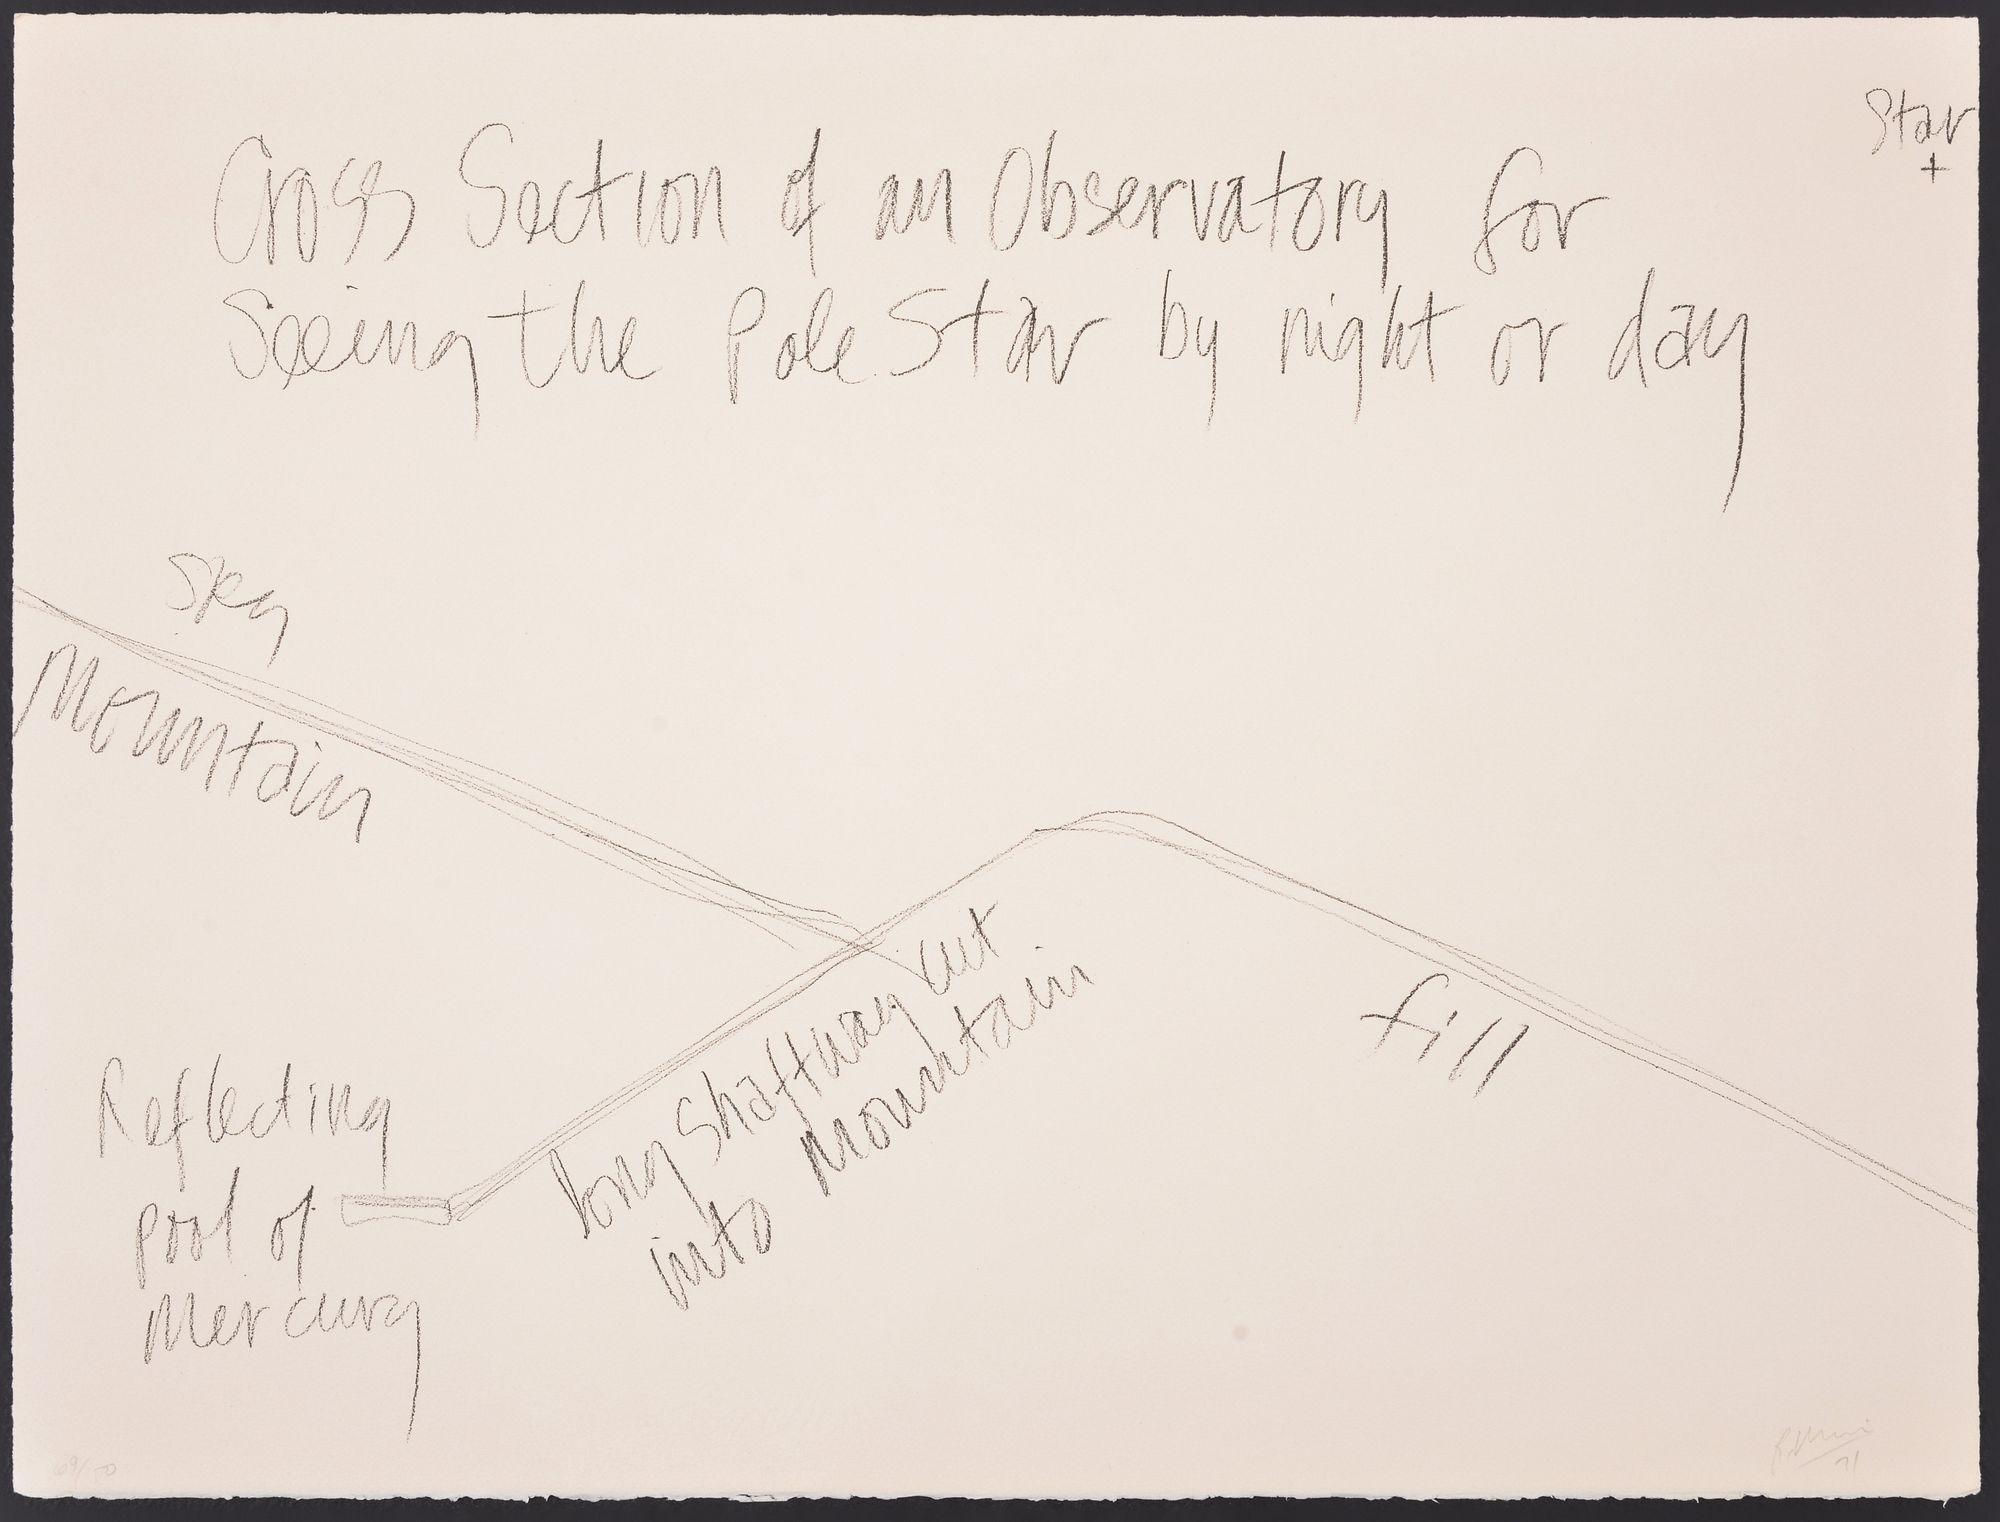 Star
+
Cross Section of an Observatory for
Seeing the Pole Star by night or day
Sky
Mountain
long Shaftway cut
into mountain
fill
Reflecting
pool of
Mercury
71